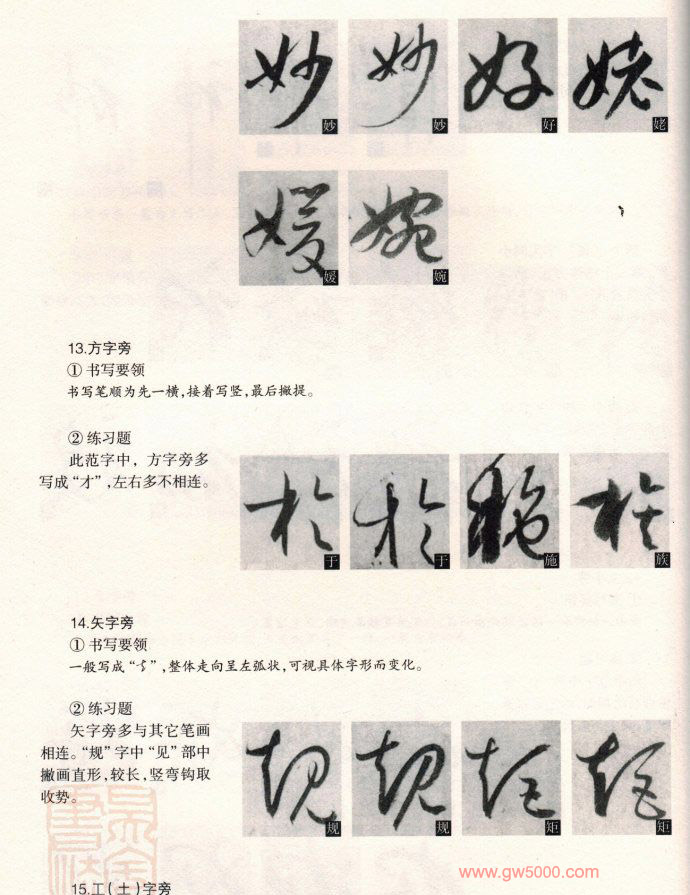 妙 妙 好 姥
媛 婉
13.方字旁
① 书写要领
书写笔顺为先一横,接着写竖,最后撇提。
② 练习题
此范字中，方字旁多
写成“才”,左右多不相连。
于 于 施 族
14.矢字旁
① 书写要领
一般写成“ ”,整体走向呈左弧状,可视具体字形而变化。
② 练习题
矢字旁多与其它笔画
相连。“规”字中“见”部中
撇画直形,较长,竖弯钩取
收势。
规 规 矩 矩
www.gw5000.com
15.工(土)字旁